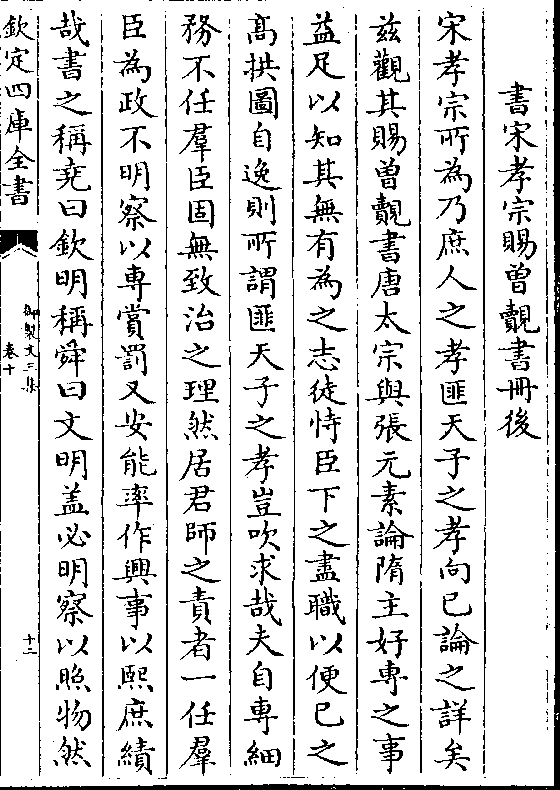 書宋孝宗賜曾覿書冊後
宋孝宗所為乃庶人之孝匪天子之孝向已論之詳矣
茲觀其賜曾覿書唐太宗與張元素論隋主好專之事
益足以知其無有為之志徒恃臣下之盡職以便已之
髙拱圖自逸則所謂匪天子之孝豈吹求哉夫自專細
務不任羣臣固無致治之理然居君師之責者一任羣
臣為政不明察以專賞罰又安能率作興事以熙庶績
哉書之稱堯曰欽明稱舜曰文明盖必明察以照物然
欽定四庫全書
御製文三集
卷十
十二